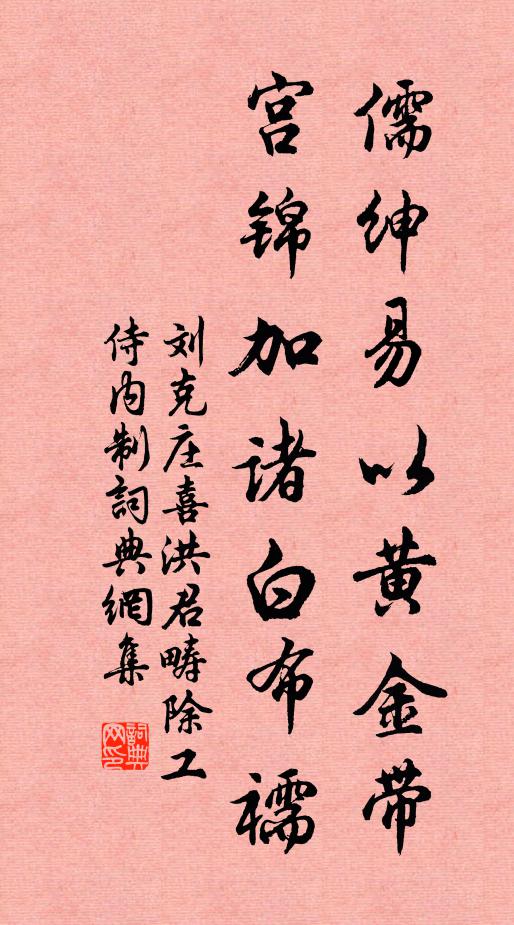 儒绅易以黄金带
宫锦加诸白布襦
刘克庄喜洪君畴除工
侍内制詞典網集
詞典网印